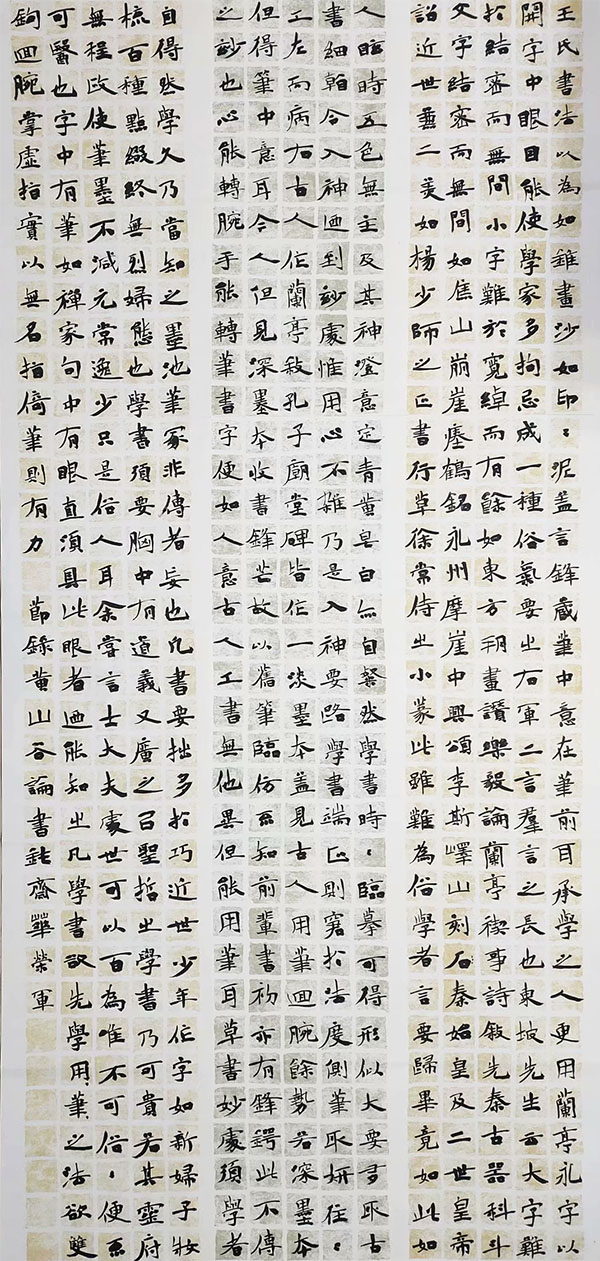 王氏書法以為如錐畫沙如印〻泥蓋言鋒藏筆中意在筆前耳承學之人更用蘭亭永字以
開字中眼目能使學家多拘忌成一種俗氣要之右軍二言羣言之長也東坡先生云大字難
於結密而無間小字難於寬綽而有餘如東方朔畫讚樂毅論蘭亭禊事詩敘先秦古器科斗
文字結密而無間如焦山崩崖瘞鶴銘永州摩崖中興頌李斯嶧山刻石秦始皇及二世皇帝
詔近世兼二美如楊少師之正書行草徐常侍之小篆此雖難為俗學者言要歸畢竟如此如
人眩時五色無主及其神澄意定青黃皂白亦自粲然學書時〻臨摹可得形似大要多取古
書細令入神迺到妙處惟用心不雜乃是入神要路學書端正則窘於法度側筆取妍往〻
工左而病右古人作蘭亭敘孔子廟堂碑皆作一淡墨本蓋見古人用筆回腕餘勢若深墨本
但得筆中意耳今人但見深墨本收書鋒芒故以舊筆臨仿不知前輩書初亦有鋒鍔此不傳
之妙也心能轉腕手能轉筆書字便如人意古人工書無他異但能用筆耳草書妙處須學者
自得然學久乃當知之墨池筆冢非傳者妄也凡書要拙多於巧近世少年作字如新婦子妝
梳百種點綴終無烈婦態也學書須要胸中有道義又廣之以聖哲之學書乃可貴若其靈府
無程政使筆墨不減元常逸少只是俗人耳余嘗言士大夫處世可以百為唯不可俗〻便不
可醫也字中有筆如禪家句中有眼直須具此眼者迺能知之凡學書欲先學用筆之法欲雙
鉤回腕掌虛指實以無名指倚筆則有力 節錄黃山谷論書 齋華榮軍